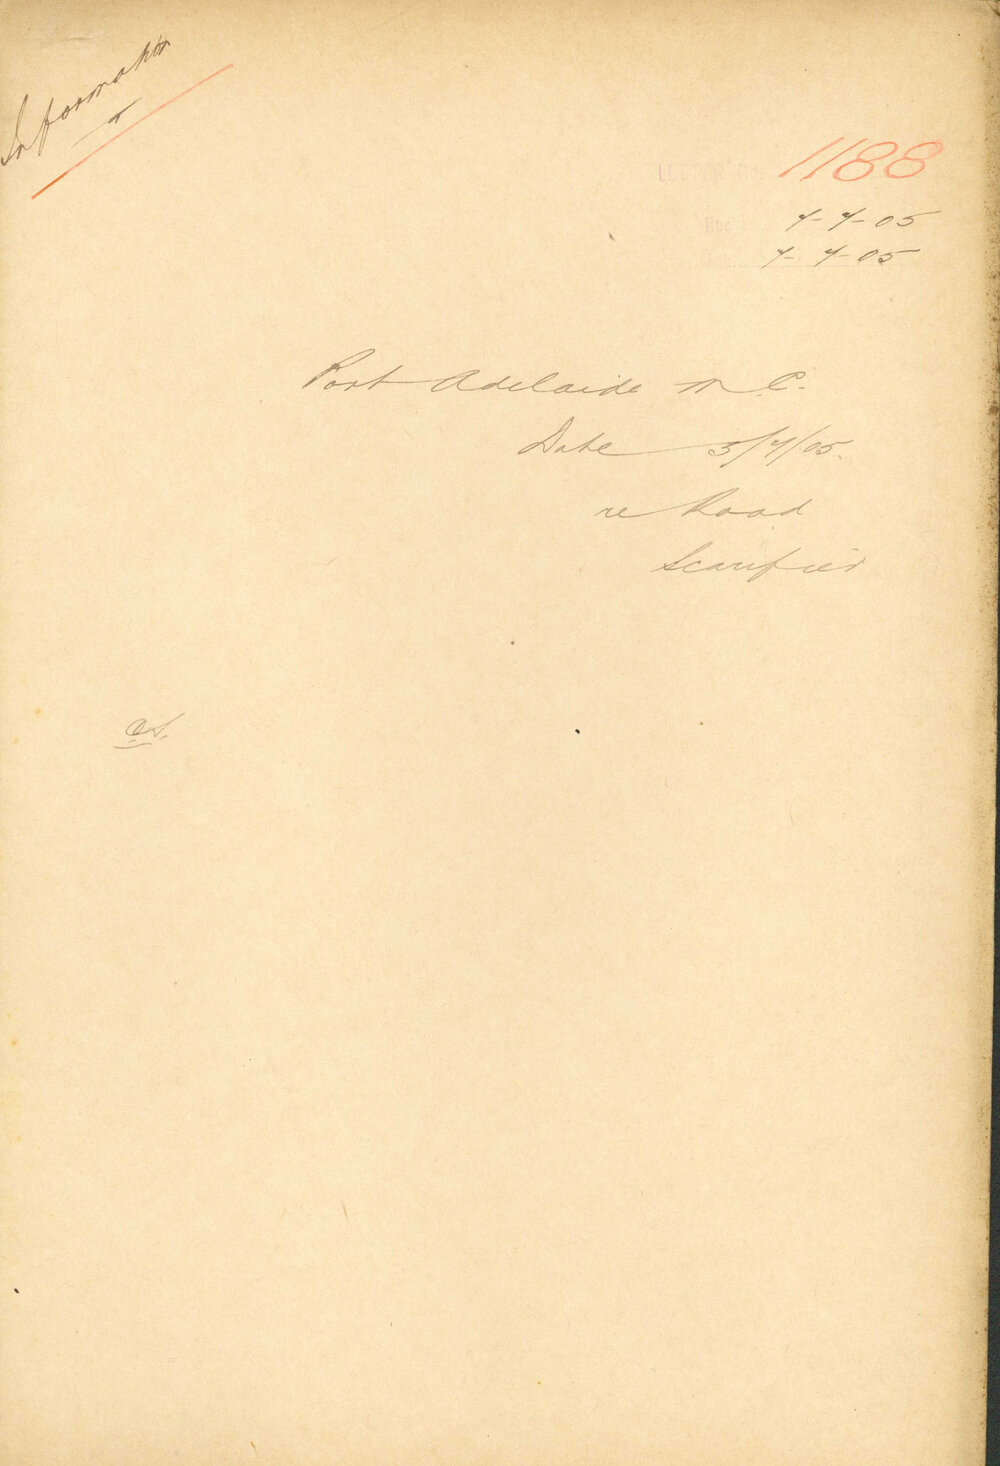 Information
LETTER No. 1188
Rec'd 7-7-05
Ack. 7-7-05
Port Adelaide M.C.
Date 3/7/05.
re Road
Scarifier